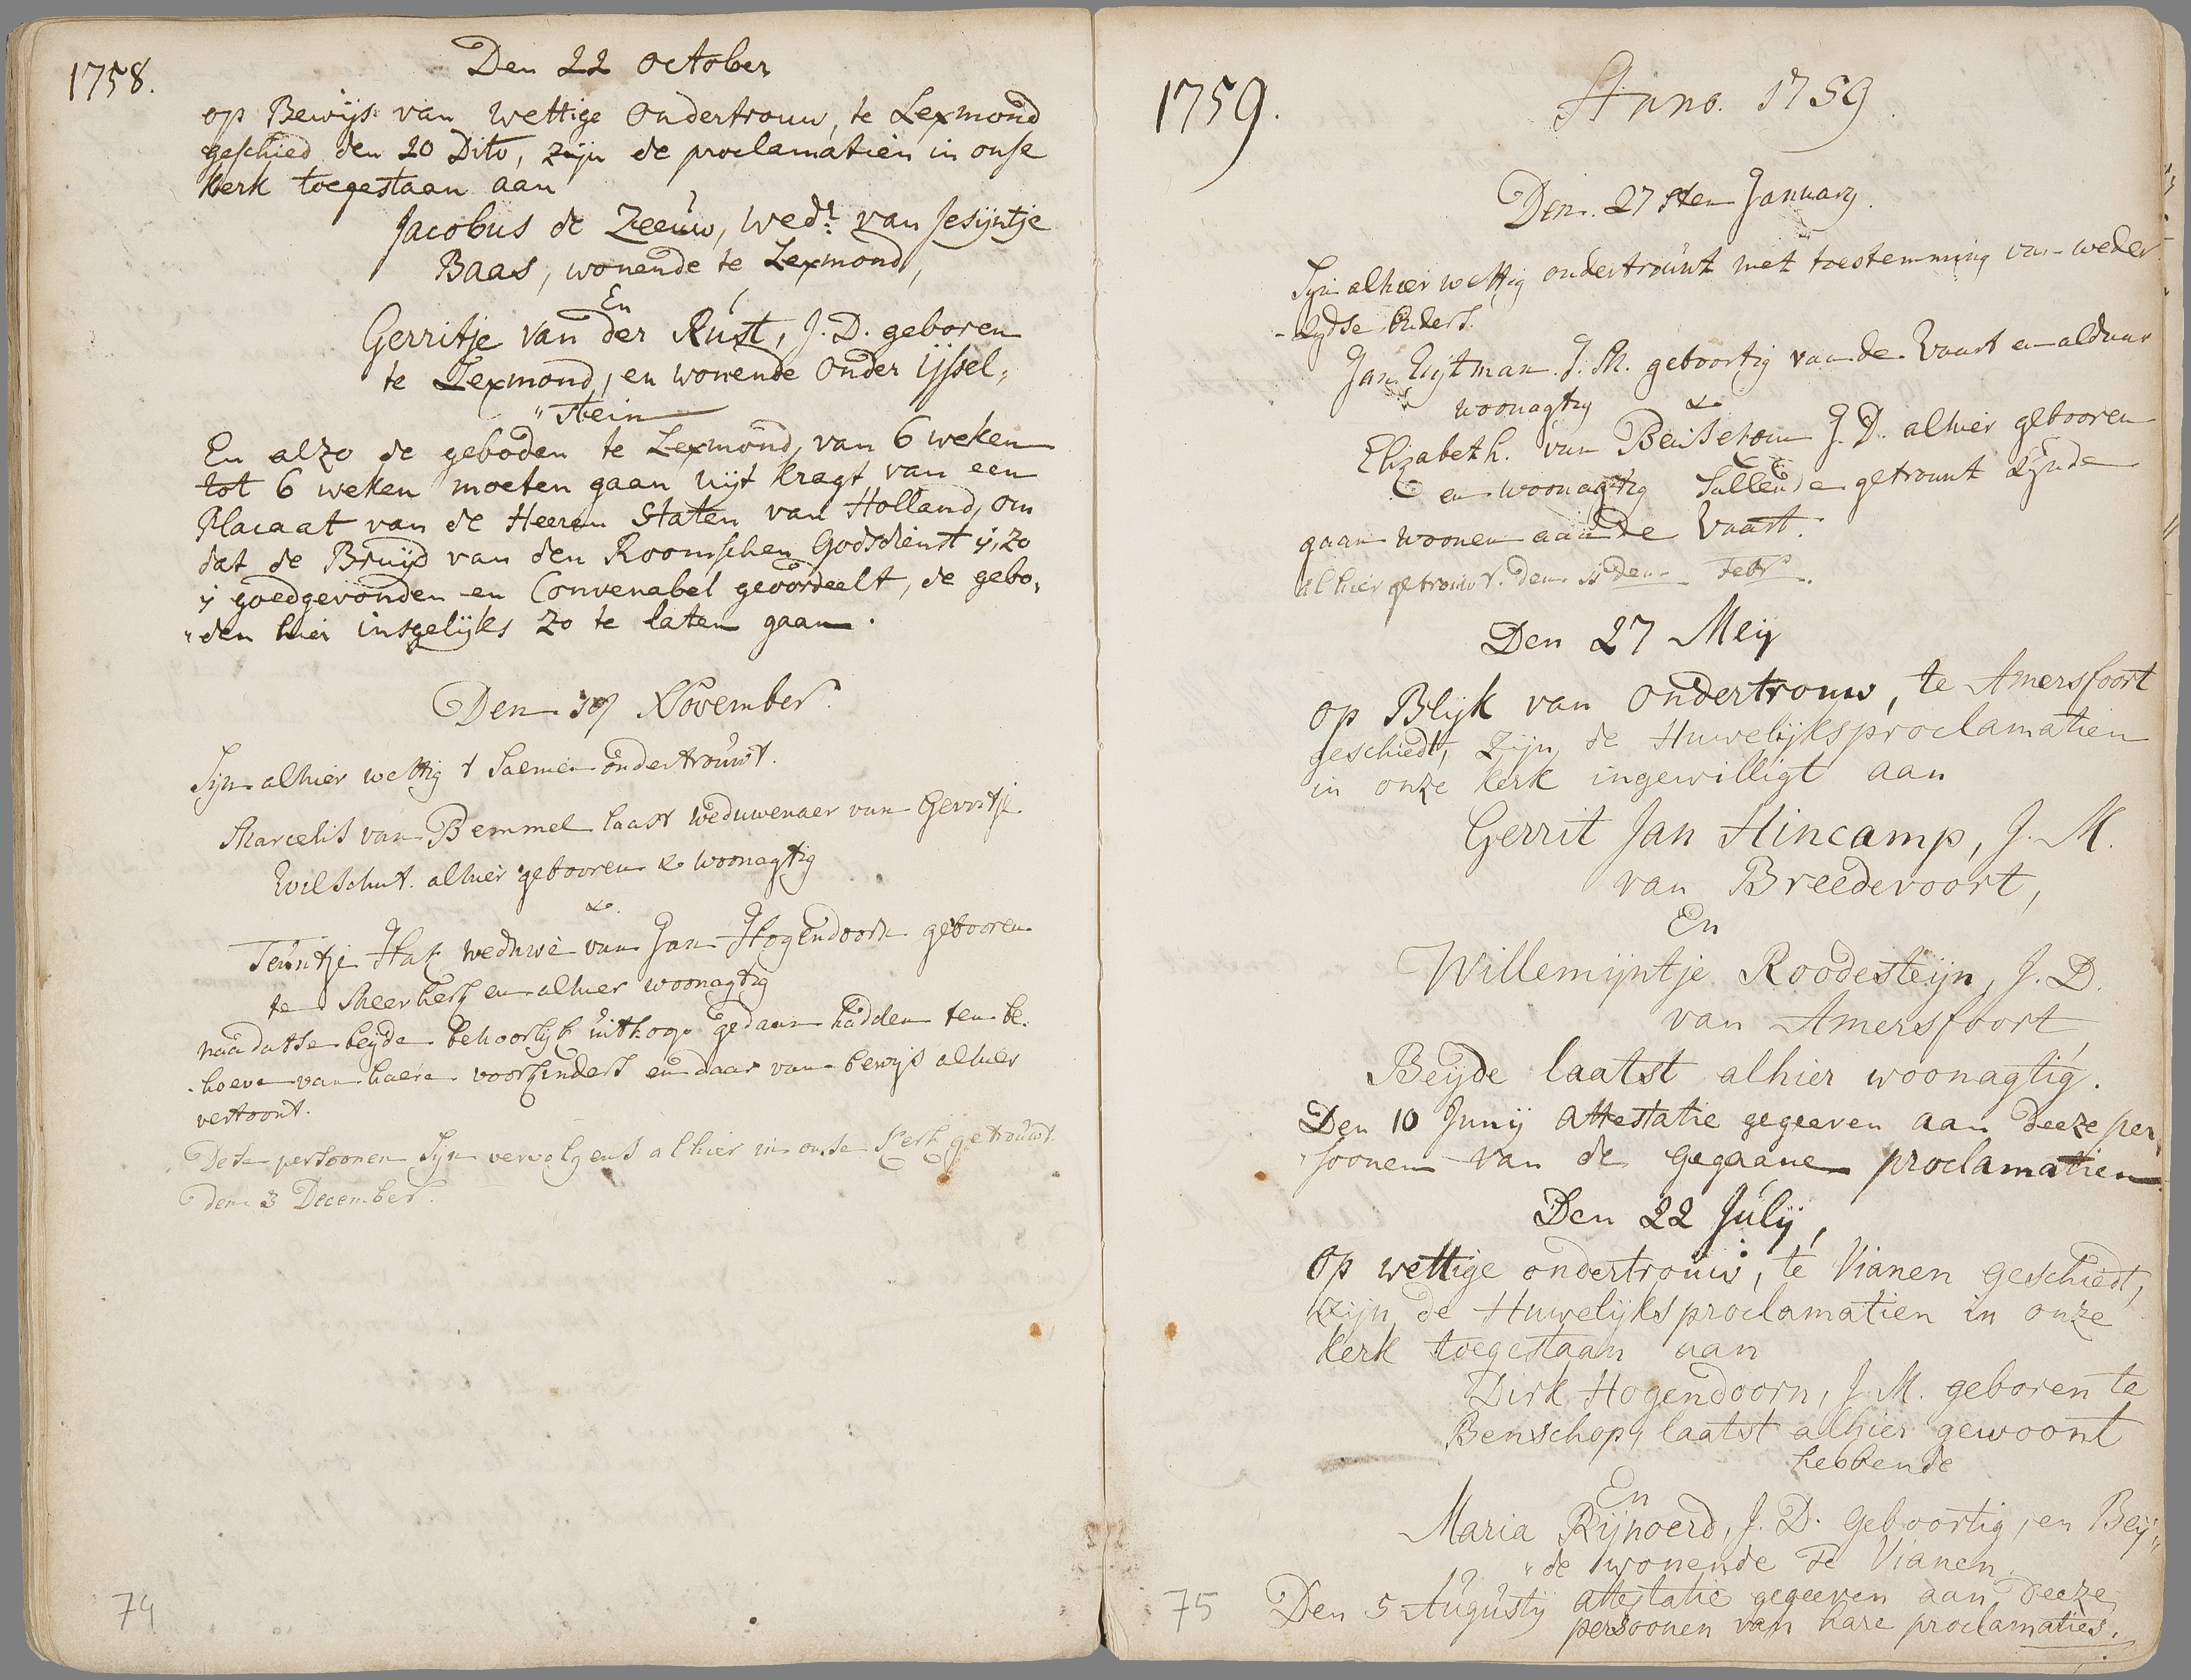 1758.
Den 22 october
op Bewijs van wettige Ondertrouw, te Lexmond
geschied den 20 Dito, zijn de proclamatien in onse
kerk toegestaan aan
Jacobus de Zeeuw, wedr. van Jesijntje
Baas, wonende te Lexmond,
En
Gerritje van der Rust, J. D. geboren
te Lexmond, en wonende Onder ijssel„
„stein
En alzo de geboden te Lexmond, van 6 weken
tot 6 weken moeten gaan uijt kragt van een
Placaat van de Heeren Staten van Holland, om
dat de Bruijd van den Roomschen Godsdienst ij, zo
ij goedgevonden en Convenabel geoordeelt, de gebo„
„den hier insgelijks zo te laten gaan.
Den November.
Sijn alhier wettig t Saemen ondertrouwt.
Marcelis van Bemmel laast weduwenaer van Gerritje
Wilschut. alhier gebooren & woonagtig
&.
Teuntje Hak weduwe van Jan Hogendoorn gebooren
te Meerkerk en alhier woonagtig
naa datse beyde behoorlijk uitkoop gedaan hadden ten be-
-hoeve van haere voorkinders en daar van bewijs alhier
vertoont.
Dese persoonen Sijn vervolgens alhier in onse Kerk getrouwt.
den 3 December.
74
1759.
Anno. 1759.
Den. 27sten January.
Syn alhier wettig ondertrouwt met toestemming van weder
-zydse Ouders.
Jan Uijtman. J. M. geboortig van de Vaart en aldaar
woonagtig &
Elizabeth. van J. D. alhier gebooren
en woonagtig Sullende getrouwt zynde
gaan woonen aan de Vaart.
alhier getrouwt. den 11den Febr.
Den 27 Meij
op Blijk van Ondertrouw, te Amersfoort
geschiedt, zijn de Huwelijksproclamatien
in onze kerk ingewilligt aan
Gerrit Jan Hincamp, J. M.
van Breedevoort,
En
Willemijntje Roodesteijn, J. D.
van Amersfoort,
Beijde laatst alhier woonagtig.
Den 10 Junij attestatie gegeeven aan deeze per„
„soonen van de gegaane proclamatien.
Den 22 Julij,
Op wettige ondertrouw, te Vianen geschiedt,
zijn de Huwelijksproclamatien in onze
kerk toegestaan aan
Dirk Hogendoorn, J. M. geboren te
Benschop, laatst alhier gewoont
hebbende
En
Maria Rijnoerd, J. D. geboortig, en Beij„
„de wonende te Vianen.
Den 5 Augustij attestatie gegeeven aan deeze
persoonen van hare proclamaties.
75